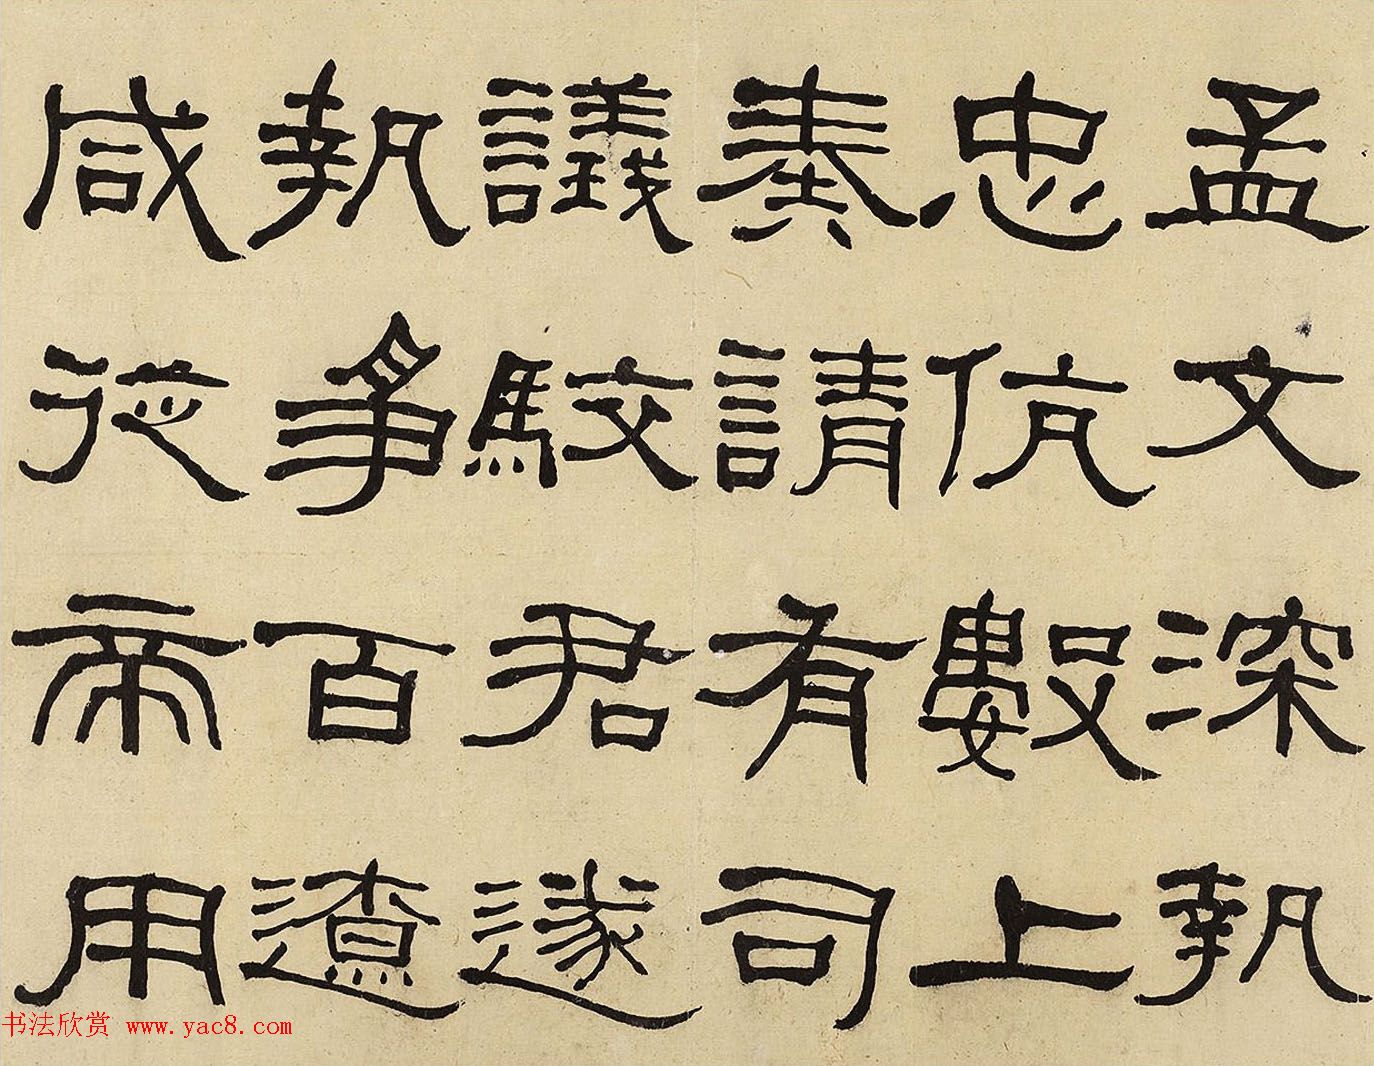 孟文深執
忠伉數上
奏請有司
議駮君遂
執爭百遼
咸從帝用
书法欣赏 www.yac8.com